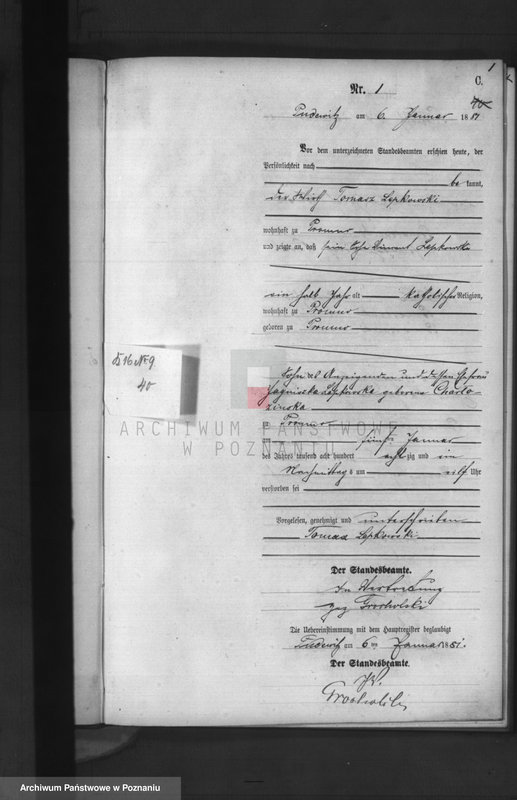 1
C.
Nr. 1
Pudewitz am 6. Januar 1881
Vor dem unterzeichneten Standesbeamten erschien heute, der
Persönlichkeit nach
be kannt,
der Wirth Tomasz Lepkowski
wohnhaft zu Promno
und zeigte an, daß sein Sohn Vincent Lepkowski
ein halb Jahr alt katholischer Religion,
wohnhaft zu Promno
geboren zu Promno
Sohn des Anzeigenden und dessen Ehefrau
Jagnieszka Lepkowska geborene
zu Promno
am fünften Januar
des Jahres tausend acht hundert achtzig und ein
Nachmittags um eilf Uhr
verstorben sei
Vorgelesen, genehmigt und unterschrieben
Tomasz Lepkowski
Der Standesbeamte.
In Vertretung
gez Grocholski
Die Uebereinstimmung mit dem Hauptregister beglaubigt
Pudewitz am 6 ten Januar 1881.
Der Standesbeamte.
J.V.
Grocholski
№ 9
40
ARCHIWUM PAŃSTWOWE
W POZNANIU
Archiwum Państwowe w Poznaniu